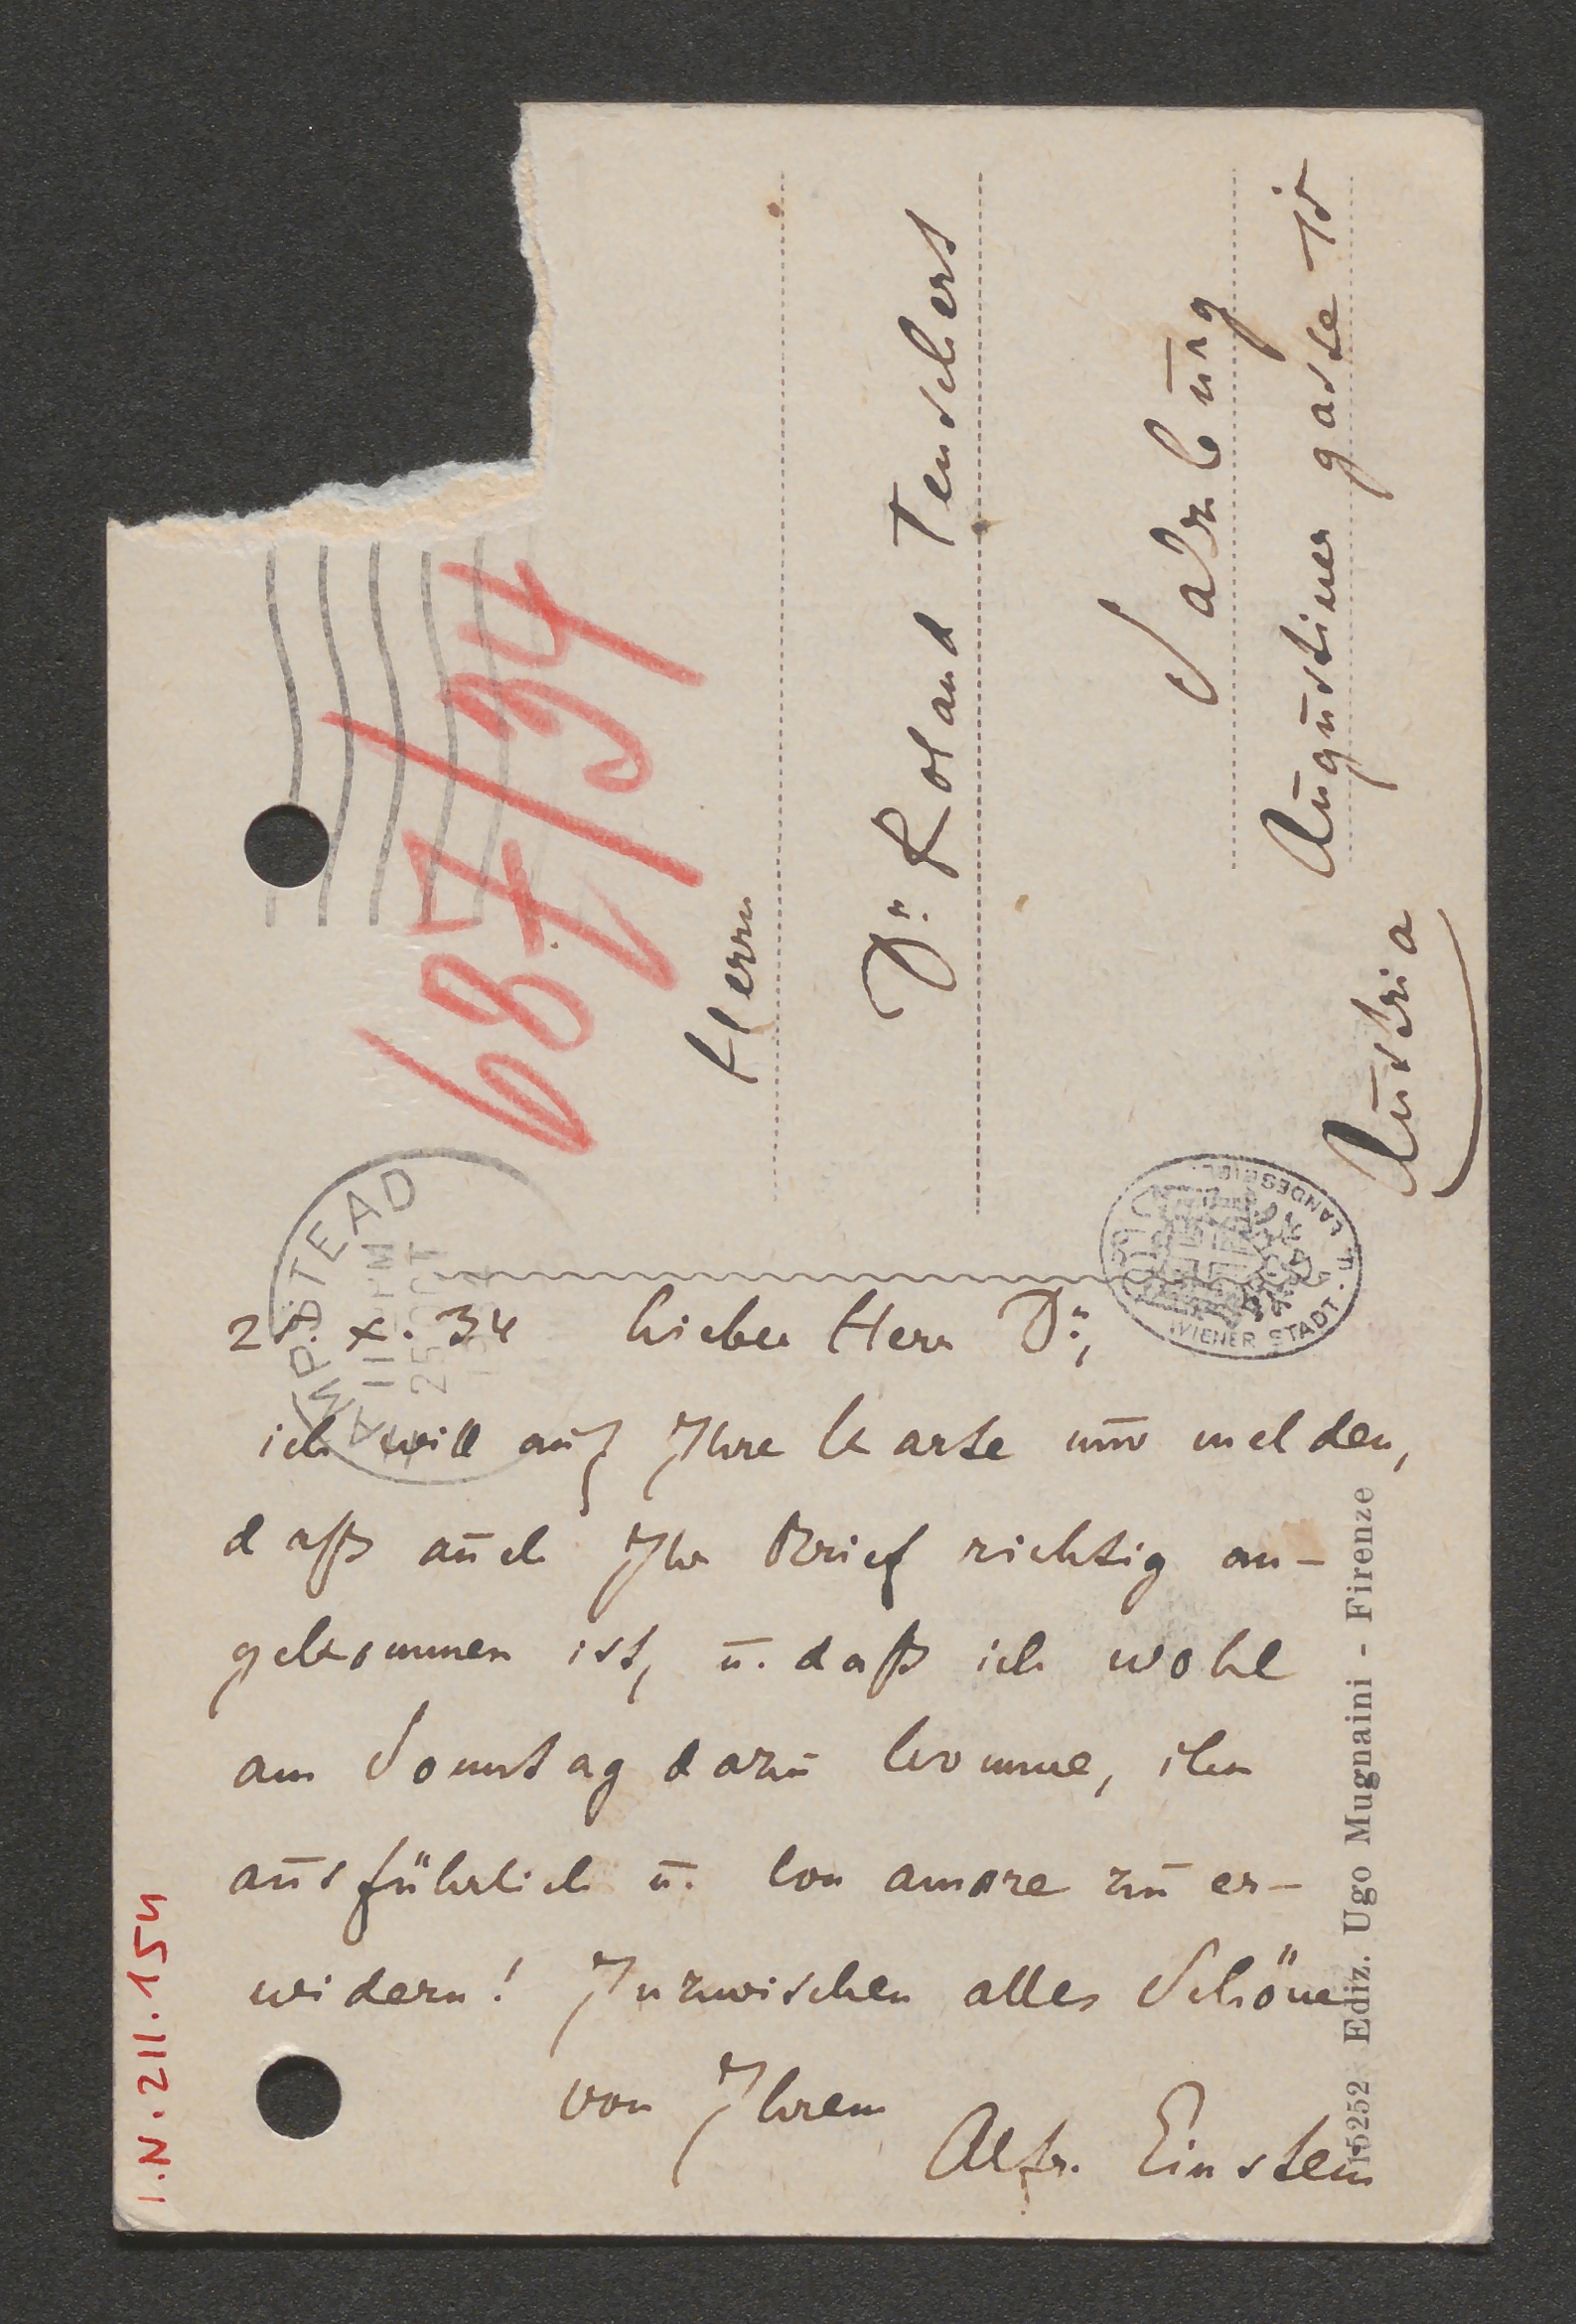 Herrn
Dr. Roland Tenschert
Salzburg
Augustinergasse
Austria
687/34
HAMPSTEAD
25 OCT
WIENER STADT- U. LANDESBIBL.
X. 34 Lieber Herr Dr.,
ich will auf Ihre Karte nur melden,
daß auch Ihr Brief richtig an-
gekommen ist, u. daß ich wohl
am Sonntag dazu komme, ihn
ausführlich u. con amore zu er-
widern! Inzwischen alles Schöne
von Ihrem
Alfr. Einstein
15252 Ediz. Ugo Mugnaini - Firenze
I.N. 211.154